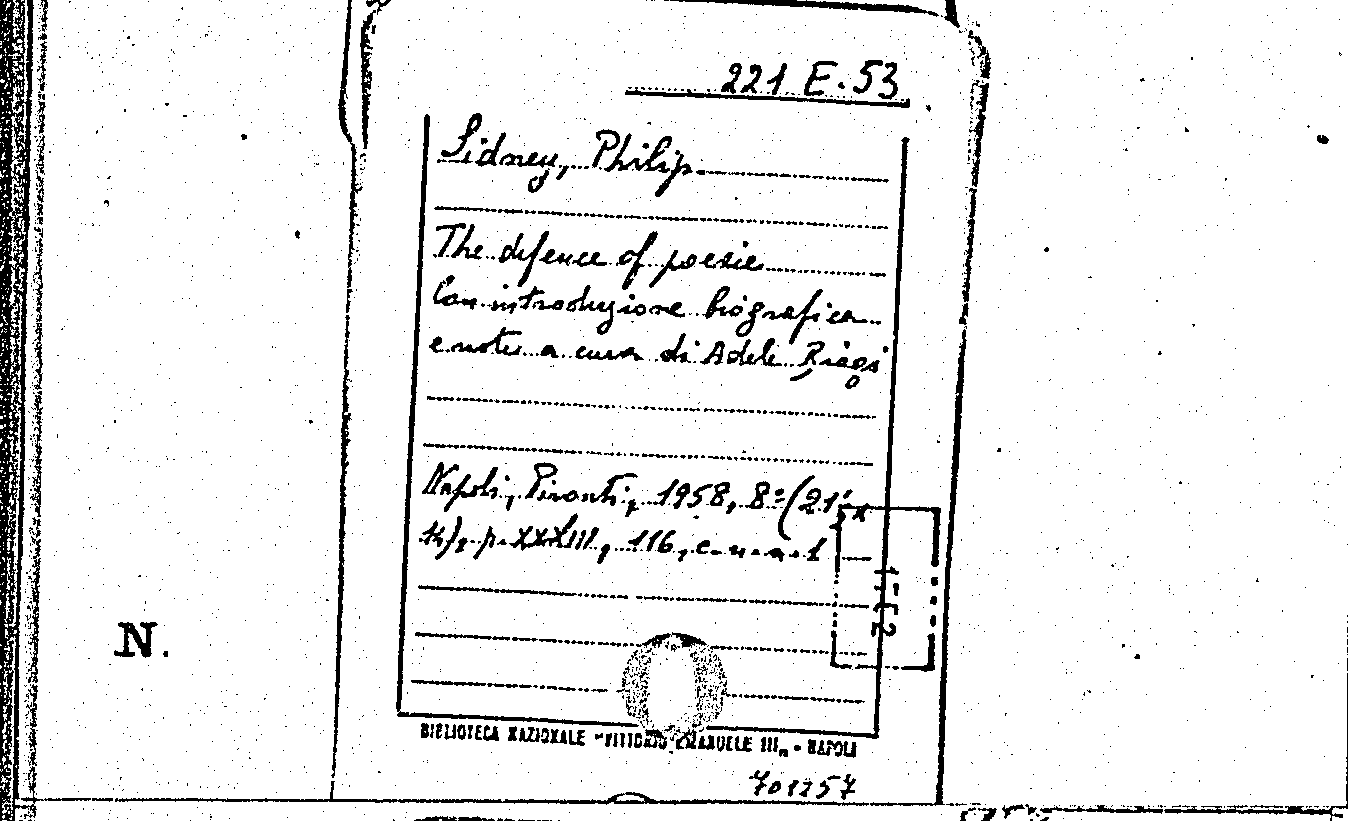 221 E.53
Sidney, Philip.
The defence of poesie
Con introduzione biografica
e note a cura di Adele Biagi
Napoli, Pironti, 1958, 8º (21, x
14), p. XXXIII, 116, c.n.n. 1
N.
BIBLIOTECA NAZIONALE "VITTORIO EMANUELE III" - NAPOLI
701257